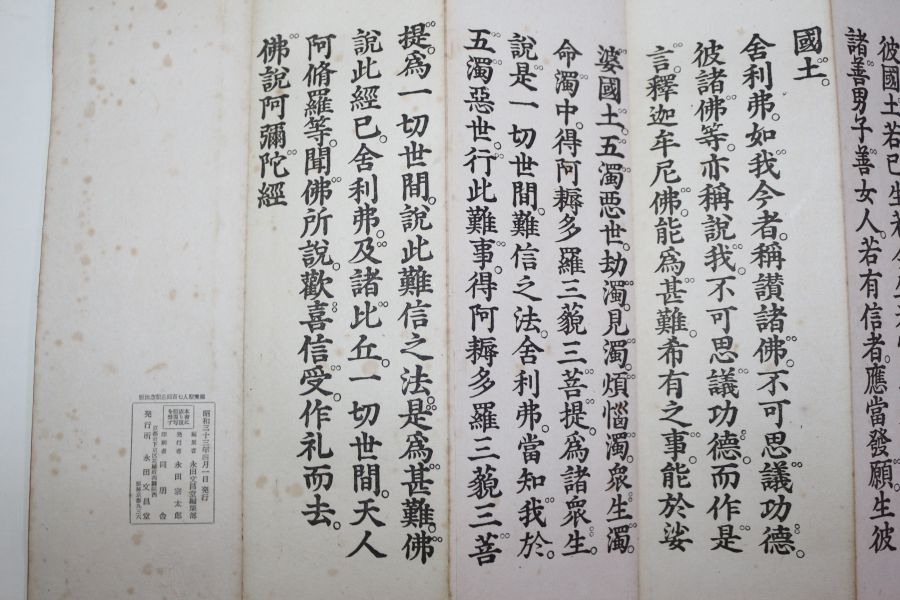 諸善男子善女人。若有信者。應當發願。生彼
國土。
舍利弗。如我今者。稱讚諸佛。不可思議功德。
彼諸佛等。亦稱說我。不可思議功德。而作是
言。釋迦牟尼佛。能爲甚難。希有之事。能於娑
婆國土。五濁惡世。劫濁。見濁。煩惱濁。衆生濁。
命濁中。得阿耨多羅三藐三菩提。爲諸衆生。
說是一切世間。難信之法。舍利弗。當知我於
五濁惡世。行此難事。得阿耨多羅三藐三菩
提。爲一切世間。說此難信之法。是爲甚難。佛
說此經已。舍利弗。及諸比丘。一切世間。天人
阿脩羅等。聞佛所說。歡喜信受。作礼而去。
佛說阿彌陀經
昭和三十三年四月一日発行
編集者 永田文昌堂編集部
発行者 永田宗太郎
印刷者 同朋舎
発行所 永田文昌堂